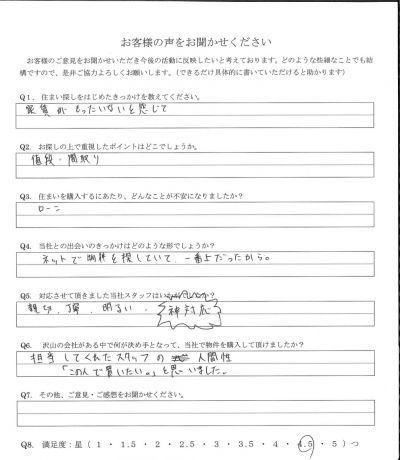 お客様の声をお聞かせください
お客様のご意見をお聞かせいただき今後の活動に反映したいと考えております。どのような些細なことでも結
構ですので、是非ご協力よろしくお願いします。(できるだけ具体的に書いていただけると助かります)
Q1. 住まい探しをはじめたきっかけを教えてください。
家賃がもったいないと感じて
Q2. お探しの上で重視したポイントはどこでしょうか。
値段・間取り
Q3. 住まいを購入するにあたり、どんなことが不安になりましたか?
ローン
Q4. 当社との出会いのきっかけはどのような形でしょうか?
ネットで物件を探していて、一番上だったから。
Q5. 対応させて頂きました当社スタッフはいかがでしたか?
親切、丁寧、明るい、神対応
Q6. 沢山の会社がある中で何が決め手となって、当社で物件を購入して頂けましたか?
担当してくれたスタッフの人間性
「この人で買いたい。」と思いました。
Q7. その他、ご意見・ご感想をお聞かせください。
Q8. 満足度:星(1・1.5・2・2.5・3・3.5・4・4.5・5)つ